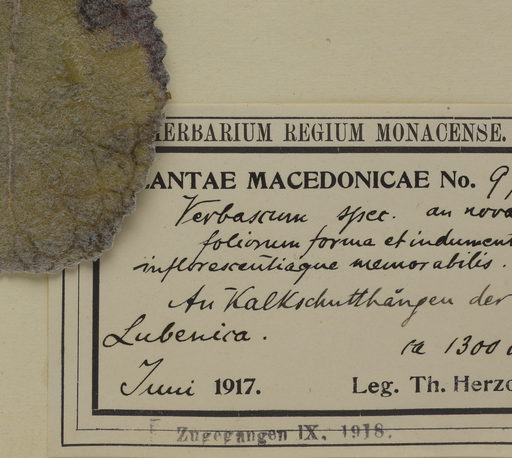 HERBARIUM REGIUM MONACENSE.
LANTAE MACEDONICAE No. 9
Verbascum spec. an nova
foliorum forma et indument
inflorescentiaque memorabilis.
An Kalkschutthängen der
Lubenica.
ca 1300
Juni 1917. Leg. Th. Herzo
Zugegangen IX. 1918.